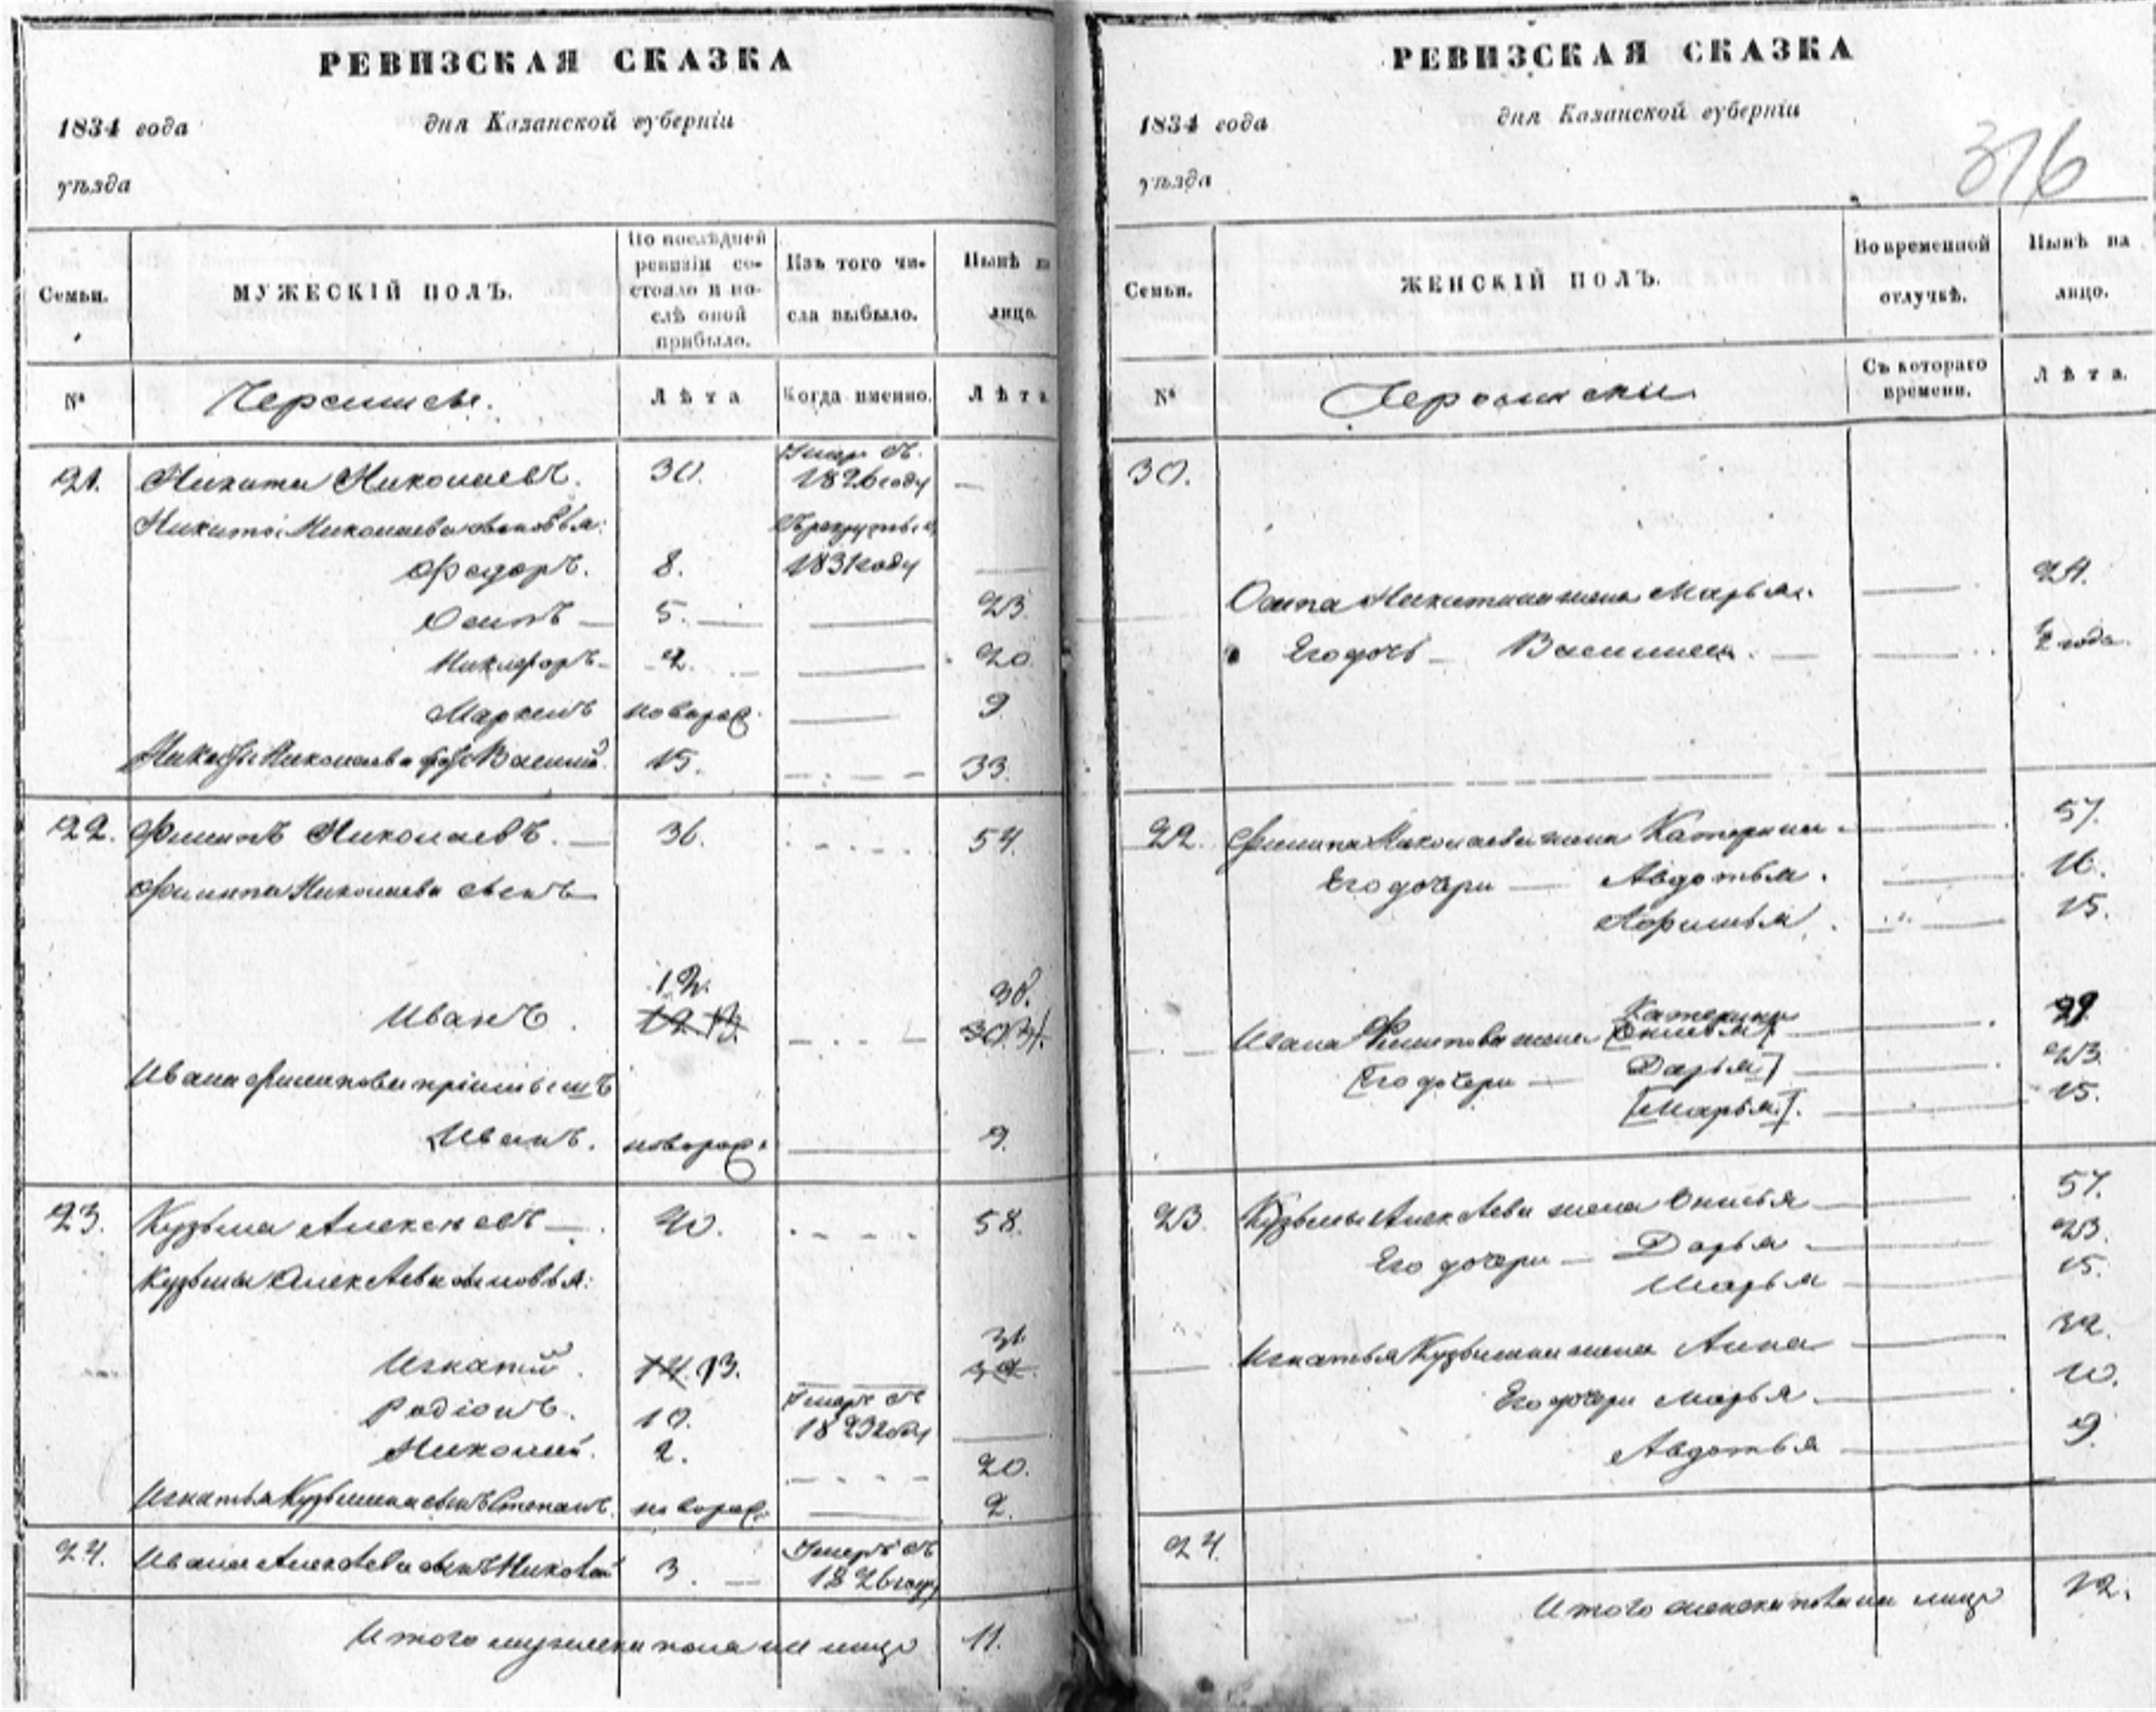 РЕВИЗСКАЯ СКАЗКА
1834 года дня Казанской губерніи
уѣзда
Семьи.
МУЖЕСКІЙ ПОЛЪ.
По послѣдней ревизіи состояло и послѣ оной прибыло.
Изъ того числа выбыло.
Нынѣ на лицо.
№ Черемисы. Лѣта Когда именно. Лѣта
21. Никита Николаевъ. 30. 1826 году —
Никиты Николаева сыновья:
Федоръ. 8. 1831 году
Осипъ 5. 23.
Никифоръ 2. 20
Маркелъ новорож. 9
Никиты Николаева братъ Василий 15. 33.
22. Филипъ Николаевъ. 36. 54.
Филипа Николаева сынъ
12. 30.
Иванъ.
Ивана Филипова пріимышъ
Иванъ. новорож. 9.
23. Кузьма Алексѣевъ 40. 58.
Кузьмы Алексѣева сыновья:
31.
Игнатий. 14. 13. 32.
Родіонъ. 10. 1823 году
Николай. 2. 20.
Игнатья Кузьмина сынъ Степанъ. новорож. 2.
24. Ивана Алексѣева сынъ Николай 3. 1826 году
Итого мужеска пола на лицо 11.
РЕВИЗСКАЯ СКАЗКА
316
1834 года дня Казанской губерніи
уѣзда
Семьи.
ЖЕНСКІЙ ПОЛЪ.
Во временной отлучкѣ.
Нынѣ на лицо.
№ Черемиски Съ котораго времени. Лѣта.
30.
Осипа Никитина жена Марья. 24.
Его дочь Василиса. ½ года.
22. Филипа Николаева жена Катерина. 57.
Его дочери Авдотья. 16.
Афимья. 15.
Катерина
Ивана Филипова жена [Онисья]. 29
[Его дочери Дарья] 23.
[Марья]. 15.
23. Кузьмы Алексѣева жена Онисья 57.
Его дочери Дарья 23.
Марья 15.
Игнатья Кузьмина жена Анна 32.
Его дочери Марья 10.
Авдотья 9.
24.
Итого женска пола на лицо 12.